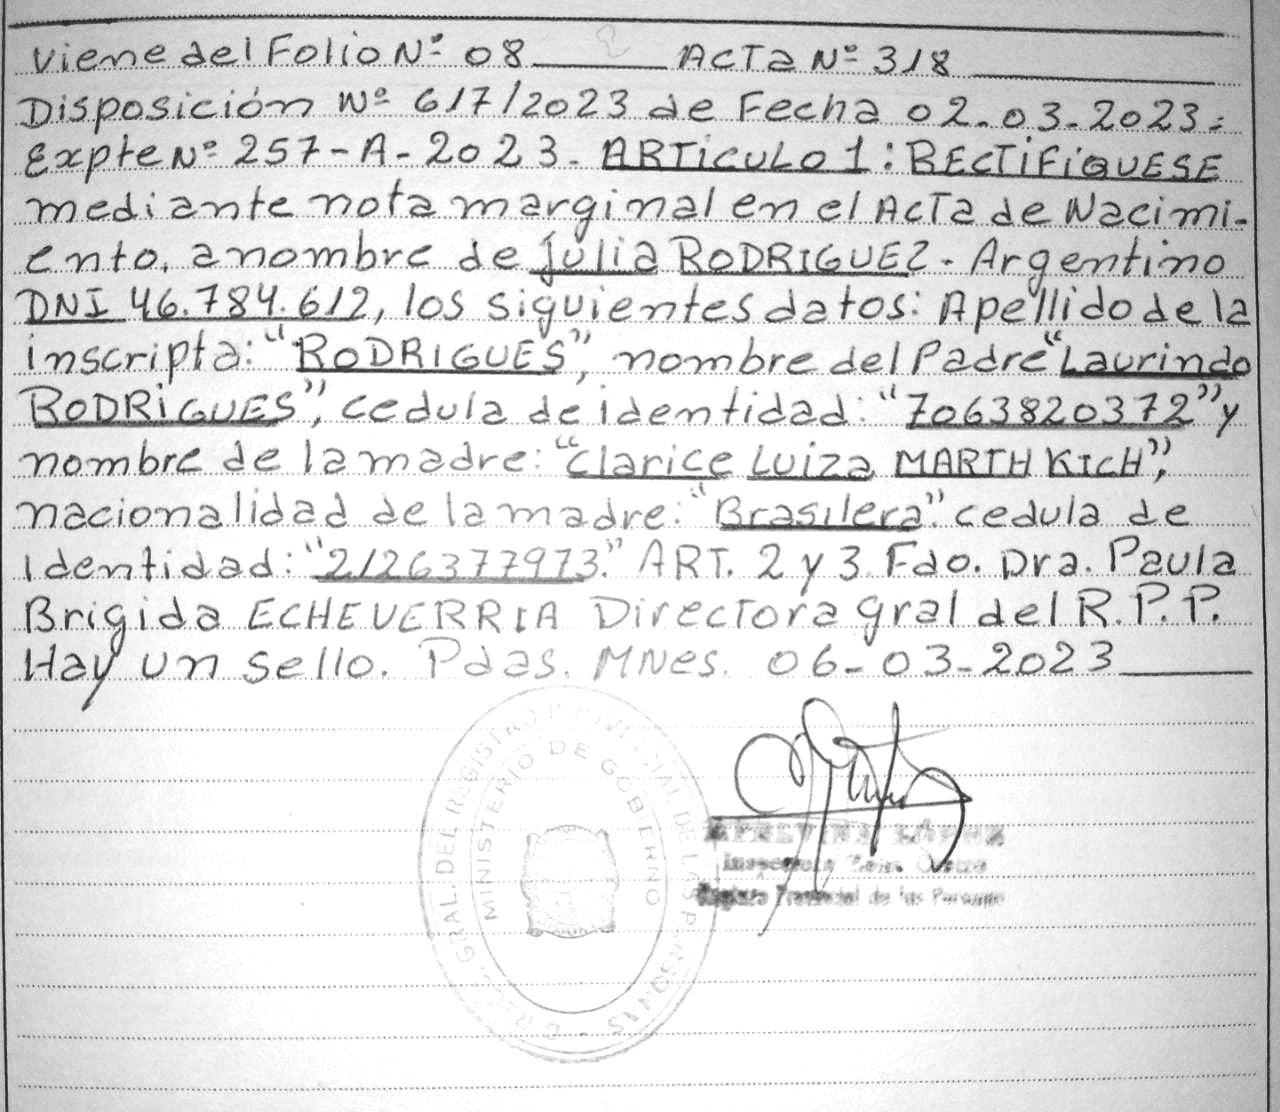 Viene del Folio Nº 08 ACTA Nº 318
Disposición Nº 617/2023 de Fecha 02-03-2023.
Expte Nº 257-A-2023. ARTICULO 1: RECTIFIQUESE
mediante nota marginal en el Acta de Nacimi-
ento, a nombre de Julia RODRIGUEZ - Argentino
DNI 46.784.612, los siguientes datos: Apellido de la
inscripta: "RODRIGUES", nombre del Padre "Laurindo
RODRIGUES", cedula de identidad: "7063820372" y
nombre de la madre: "Clarice Luiza MARTH KICH",
nacionalidad de la madre: "Brasilera". cedula de
Identidad: "2126377973." ART. 2 y 3. Fdo. Dra. Paula
Brigida ECHEVERRIA Directora gral del R.P.P.
Hay un sello. Pdas. MNes. 06-03-2023
GRAL. DEL REGISTRO PROVINCIAL DE LAS PERSONAS
MINISTERIO DE GOBIERNO
Registro Provincial de las Personas